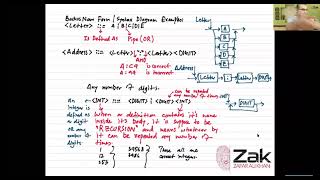 Backus Naur Form / Syntax Diagram Examples
<Letter> ::= A|B|C|D|E
Letter
A
B
C
D
E
Is Defined As Pipe (OR)
<Address> ::= <Letter> ":" <Letter> <DIGIT>
AND
A:C9 is correct
A:C9 is incorrect
Address
Letter
:
Letter
DIGIT
Any number of digits.
can be repeated any number of times
An <INT> ::= <DIGIT> | <DIGIT> <INT>
Integer is defined as digit or any number of digits
When a definition contains it's name inside it's body, it is suppose to be "RECURSION" and means whatever by it can be repeated any number of times.
1
12
357
34568
These all are correct integers.
Zak
ZAFAR ALI KHAN